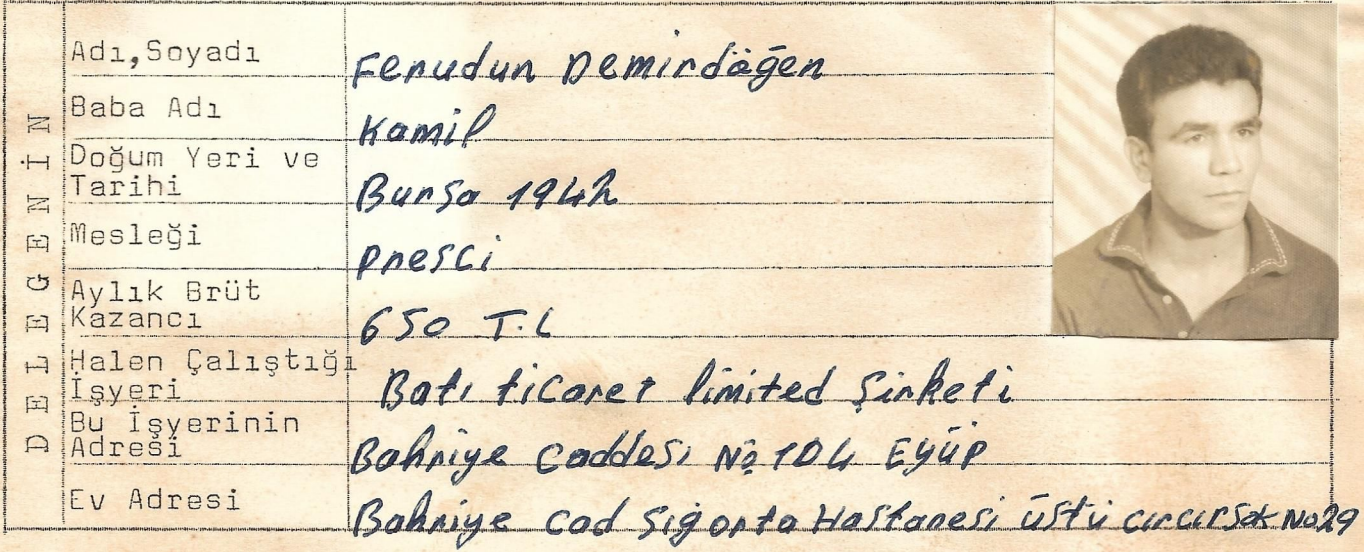 DELEGENİN
Adı,Soyadı Ferudun Demirdöğen
Baba Adı Kamil
Doğum Yeri ve
Tarihi Bursa 1942
Mesleği presci
Aylık Brüt
Kazancı 650 T.L
Halen Çalıştığı
İşyeri Batı ticaret limited Şirketi
Bu İşyerinin
Adresi Bahriye Caddesi No 104 Eyüp
Ev Adresi Bahriye Cad Sigorta Hastanesi üstü cırcır Sok No 29